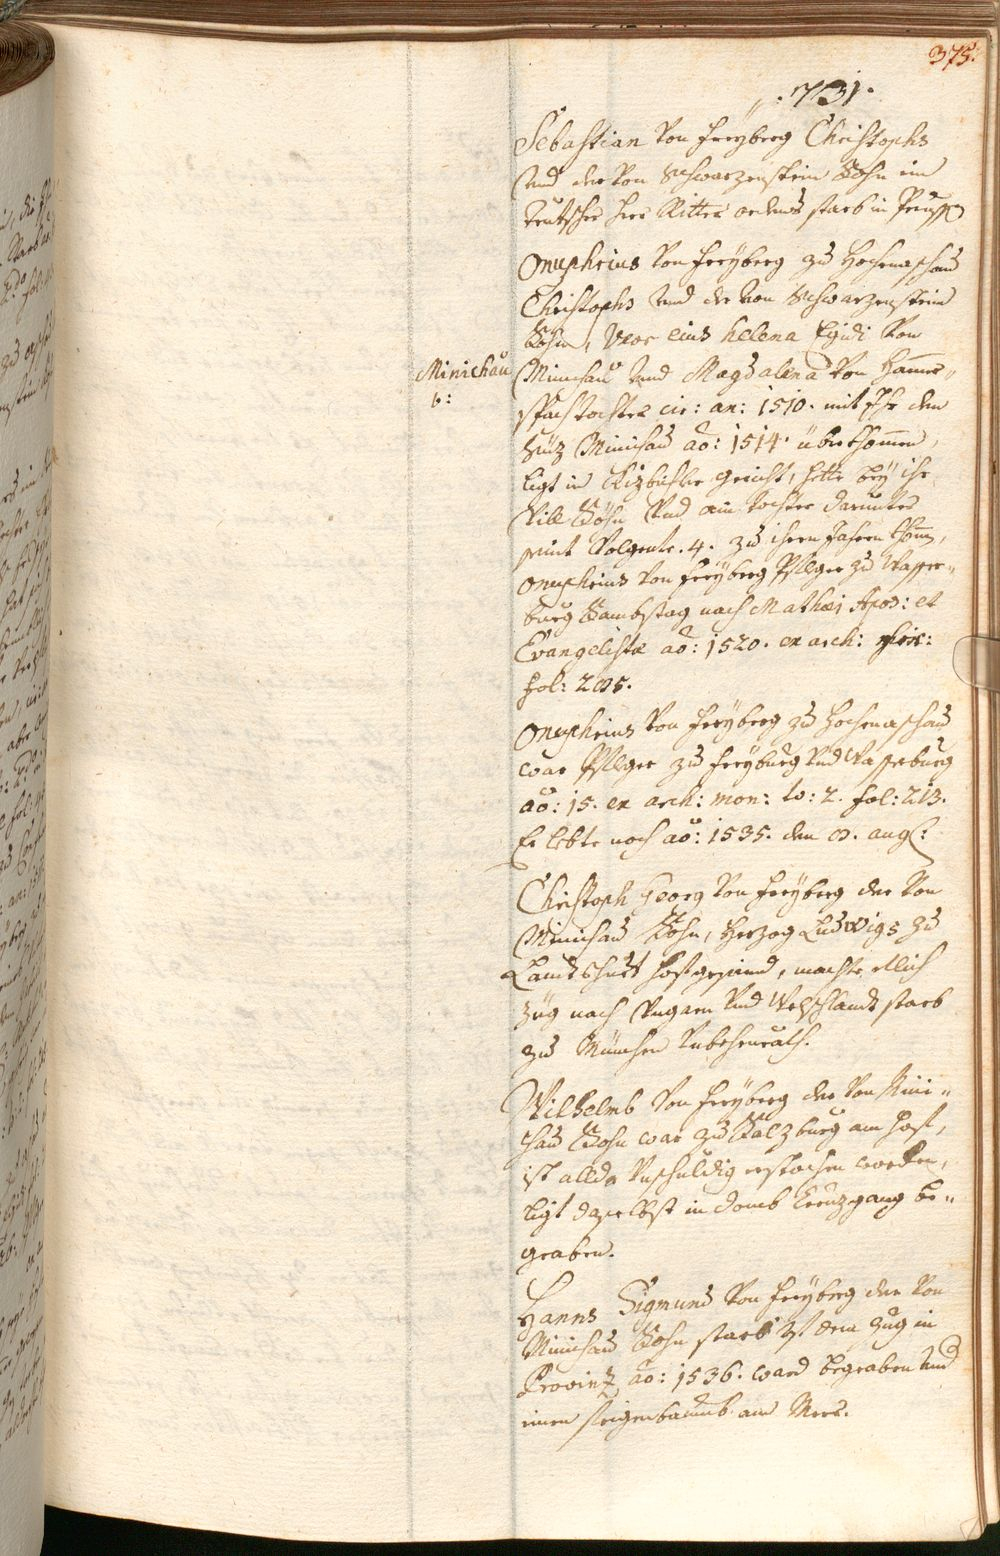 375.
731.
Sebastian von Freyberg Christophs
und der von Schwarzenstein Sohn ein
Teutscher Herr Ritter ordens starb in Preuss
Onuphrius von Freyberg zu Hochenaschau
Christophs und der von Schwarzenstein
Sohn, Uxor eius Helena Egidi von
Minichau
b:
Minichau und Magdalena von Hamer-
tochter cir: an: 1510. mit Ihr den
Minichau ao: 1514. überkhomen,
ligt in Kizbühler gericht, hette bey ihr
vill Söhn und ain tochter darunter
seint volgente .4. zu ihren Jahren khomen,
Onuphrius von Freyberg Pfleger zu Wasser-
burg Sambstag nach Mathæi Apos: et
Evangelistæ ao: 1520. ex arch:
fol: 205.
Onuphrius von Freyberg zu Hochenaschau
war Pfleger zu Freyburg und Wasserburg
ao: 15. ex arch: mon: to: 2. fol: 213.
Er lebte noch ao: 1535. den aug:
Christoph Georg von Freyberg der von
Minichau Sohn, Herzog Ludwigs zu
Landshuet hofgesind, machte etlich
Züg nach Ungarn und Welschlandt starb
zu München unbeheurath.
Wilhelmb von Freyberg der von Mini-
chau Sohn war zu Salzburg am hof,
ist allda unschuldig erstochen worden,
ligt daselbst in domb Creuzgang be-
graben.
Hanns Sigmund von Freyberg der von
Minichau Sohn starb in dem Zug in
Provinz ao: 1536. ward begraben und
einen feigenbaumb am Meer.